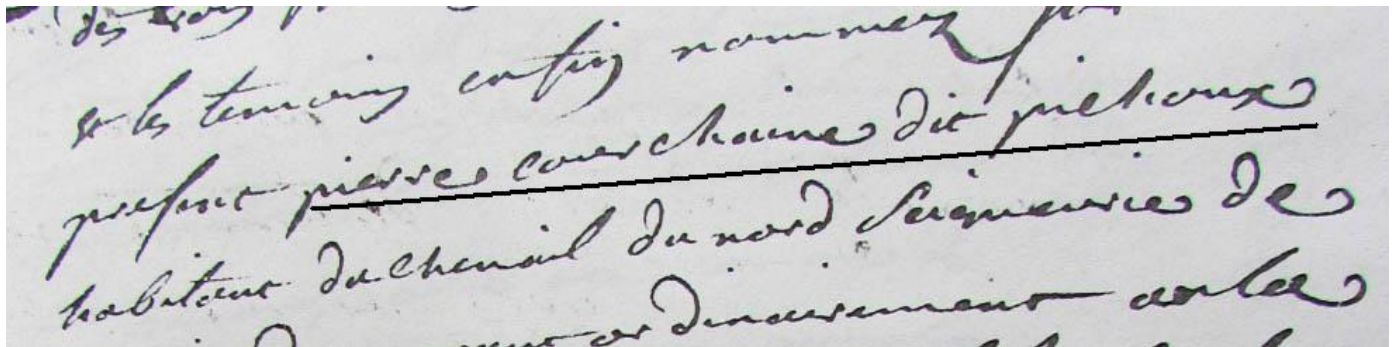 des
& les temoins enfin nommez
present pierre courchaine dit piehoux
habitant du Chenail du nord Seigneurie de
ordinairement